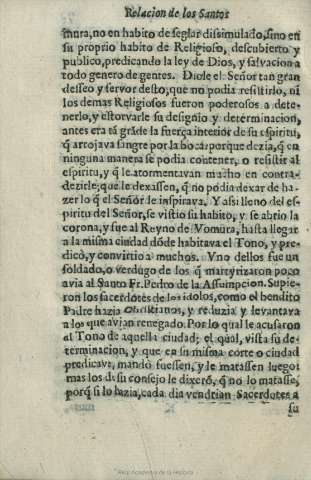 Relacion de los Santos
mura, no en habito de seglar dissimulado, sino en
su proprio habito de Religioso, descubierto y
publico, predicando la ley de Dios, y salvacion a
todo genero de gentes. Diole el Señor tan gran
desseo y fervor desto, que no podia resistirlo, ni
los demas Religiosos fueron poderosos a dete-
nerlo, y estorvarle su designio y determinacion,
antes era tã grãde la fuerça interior de su espiritu,
q̃ arrojava sangre por la boca: porque dezia, q̃ en
ninguna manera se podia contener, o resistir al
espiritu, y q̃ le atormentavan mucho en contra-
dezirle; que le dexassen, q̃ no podia dexar de ha-
zer lo q̃ el Señor le inspirava. Y assi lleno del es-
piritu del Señor, se vistio su habito, y se abrio la
corona, y fue al Reyno de Vomura, hasta llegar
a la misma ciudad dõde habitava el Tono, y pre-
dicò, y convirtio a muchos. Vno dellos fue un
soldado, o verdugo de los q̃ martyrizaron poco
avia al Santo Fr. Pedro de la Assumpcion. Supie-
ron los sacerdotes de los idolos, como el bendito
Padre hazia Christianos, y reduzia y levantava
a los que avian renegado. Por lo qual le acusaron
al Tono de aquella ciudad; el qual, vista su de-
terminacion, y que en su misma corte o ciudad
predicava, mandò fuessen, y le matassen luego:
mas los de su consejo le dixerõ, q̃ no lo matasse,
porq̃ si lo hazia, cada dia vendrian Sacerdotes a
su
Real Academia de la Historia